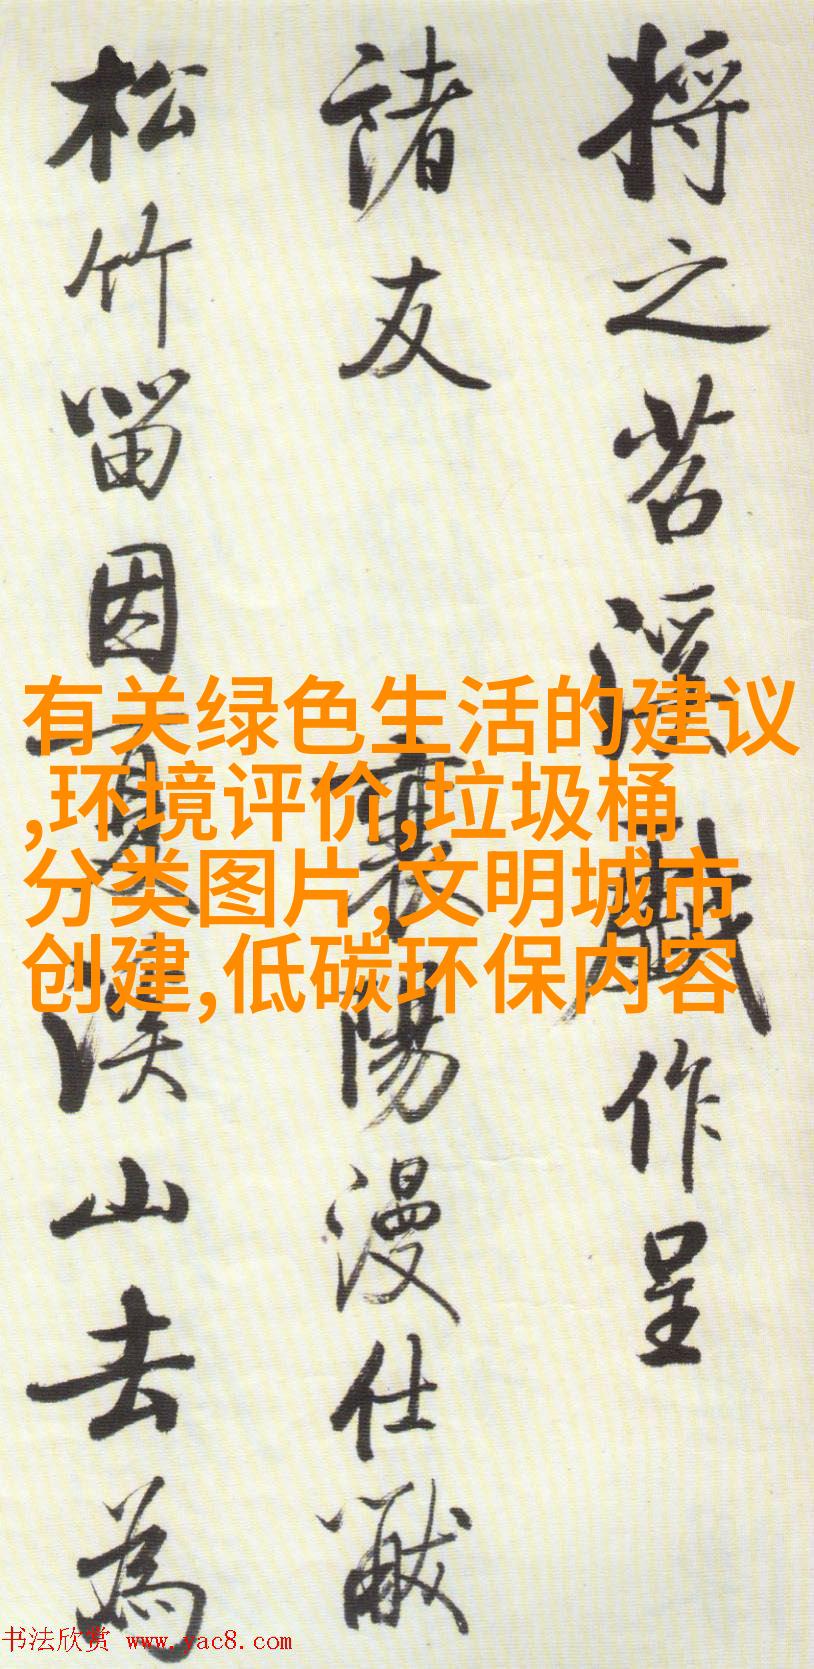 将之苕溪戲作呈
諸友
襄陽漫仕黻
松竹留因夏溪山去為
有关绿色生活的建议
,环境评价,垃圾桶
分类图片,文明城市
创建,低碳环保内容
书法欣赏 www.yac8.com